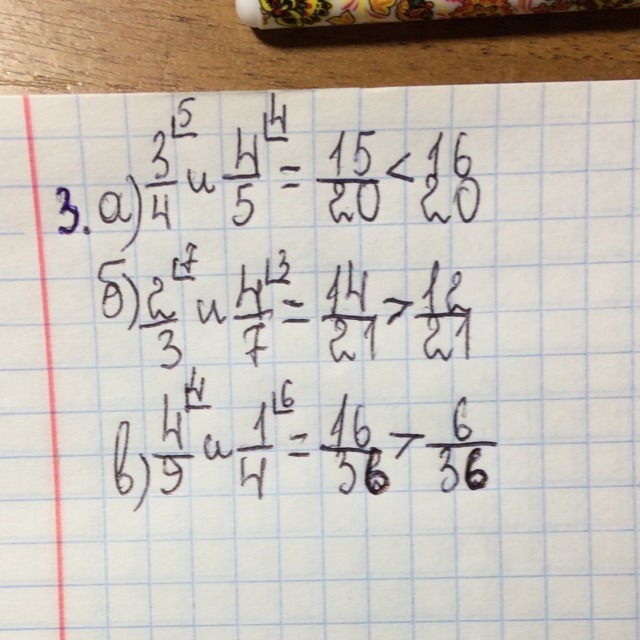 3. а) 3/4 ⌊5 и 4/5 ⌊4 = 15/20 < 16/20
б) 2/3 ⌊7 и 4/7 ⌊3 = 14/21 > 12/21
в) 4/9 ⌊4 и 1/4 ⌊6 = 16/36 > 6/36